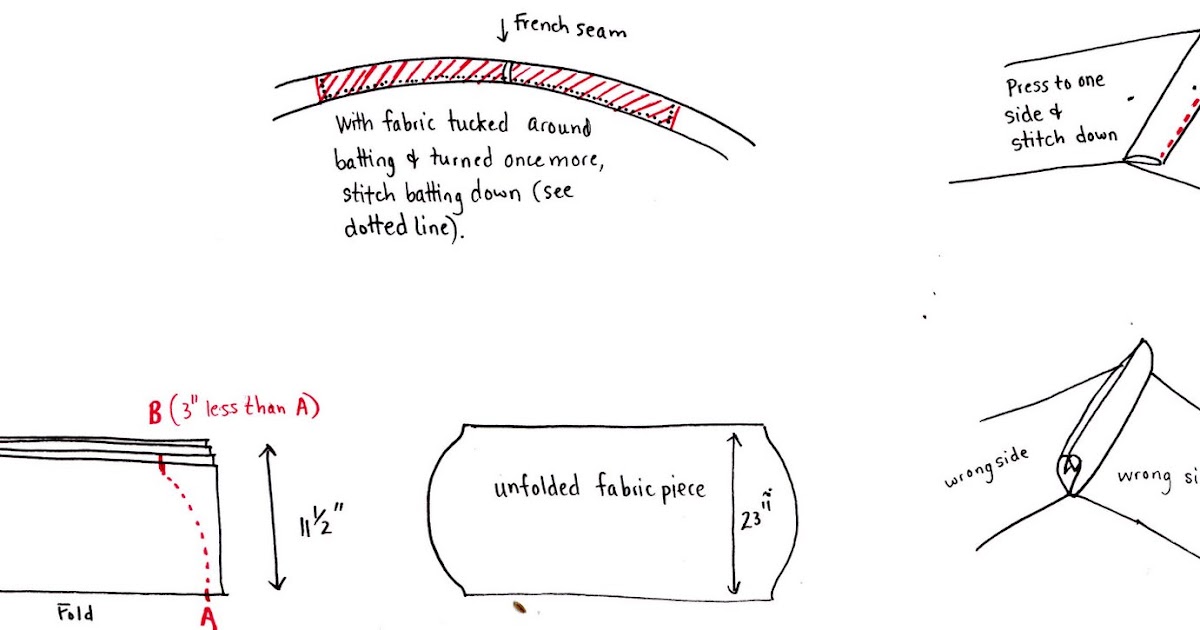 French seam
With fabric tucked around
batting & turned once more,
stitch batting down (see
dotted line).
Press to one
side &
stitch down
B (3" less than A)
11 1/2"
Fold
A
unfolded fabric piece
23"
wrong side
wrong si